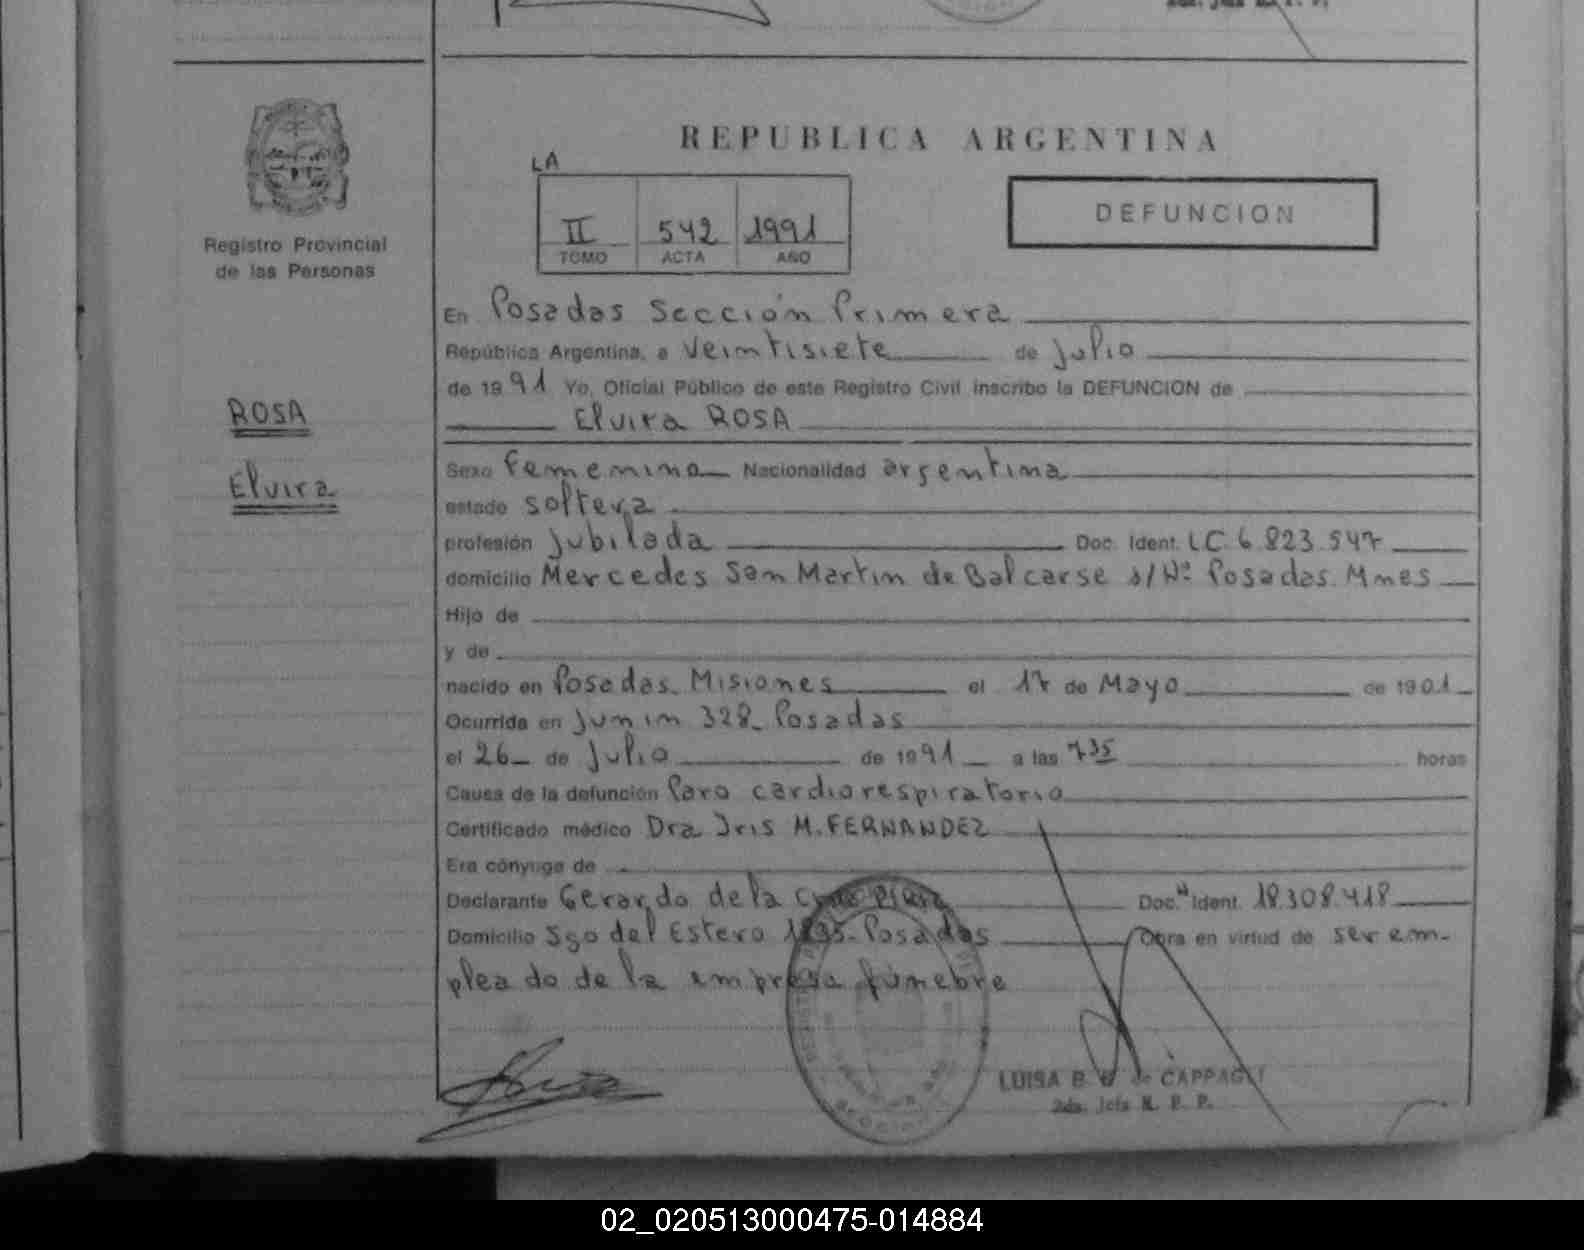 REPUBLICA ARGENTINA
LA
II 542 1991
TOMO ACTA AÑO
DEFUNCION
Registro Provincial
de las Personas
ROSA
Elvira
En Posadas Sección Primera
República Argentina, a Veintisiete de julio
de 1991 Yo, Oficial Público de este Registro Civil inscribo la DEFUNCION de
Elvira ROSA
Sexo femenino Nacionalidad argentina
estado soltera
profesión jubilada Doc. Ident. LC 6.823.547
domicilio Mercedes San Martin de Balcarse s/Nº Posadas. Mnes
Hijo de
y de
nacido en Posadas. Misiones el 17 de Mayo de 1901
Ocurrida en junin 328_ Posadas
el 26 de julio de 1991 a las 735 horas
Causa de la defunción Paro cardiorespiratorio
Certificado médico Dra Iris M. FERNANDEZ
Era cónyuge de
Declarante Gerardo de la Doc. Ident. 18.308.418
Domicilio Sgo del Estero Posadas Obra en virtud de ser em-
pleado de la empresa fúnebre
LUISA B. de CAPPAGLI
R. P. P.
02_020513000475-014884